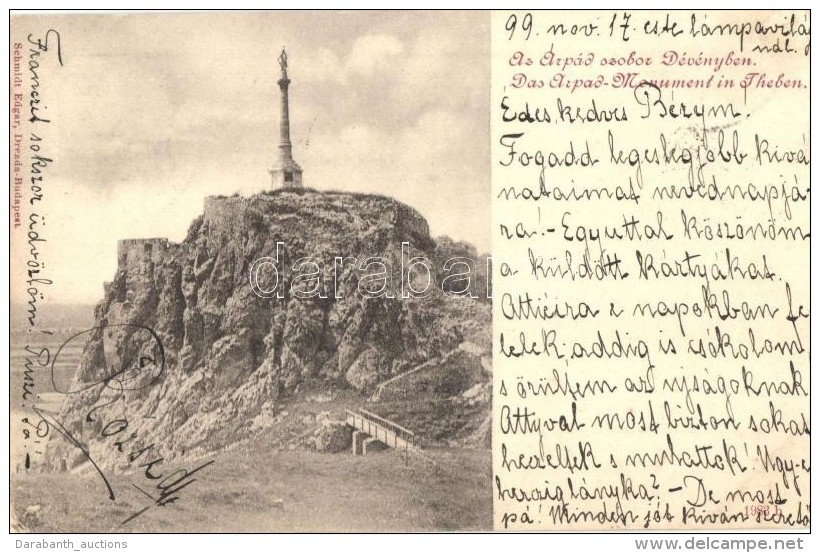 99. nov. 17. este lámpavilág
ndl.
Az Árpád szobor Dévényben.
Das Arpad-Monument in Theben.
Édes, kedves Bérym!
Fogadd legeslegjobb kivá
nataimat nevednapjá-
ra! - Egyuttal köszönöm
a küldött kártyákat.
e napokban fe
lelek, addig is csókolom
s örültem az ujságoknak
Attyval most bizton sokat
beszéltek s mulattok! Ugy-e
herzig lányka? - De most
pá! Minden jót kiván szerető
Franczit sokszor üdvözlöm!
Rózsa
Schmidt Edgar, Drezda-Budapest
darabanth
Darabanth_auctions
http://www.delcampe.net